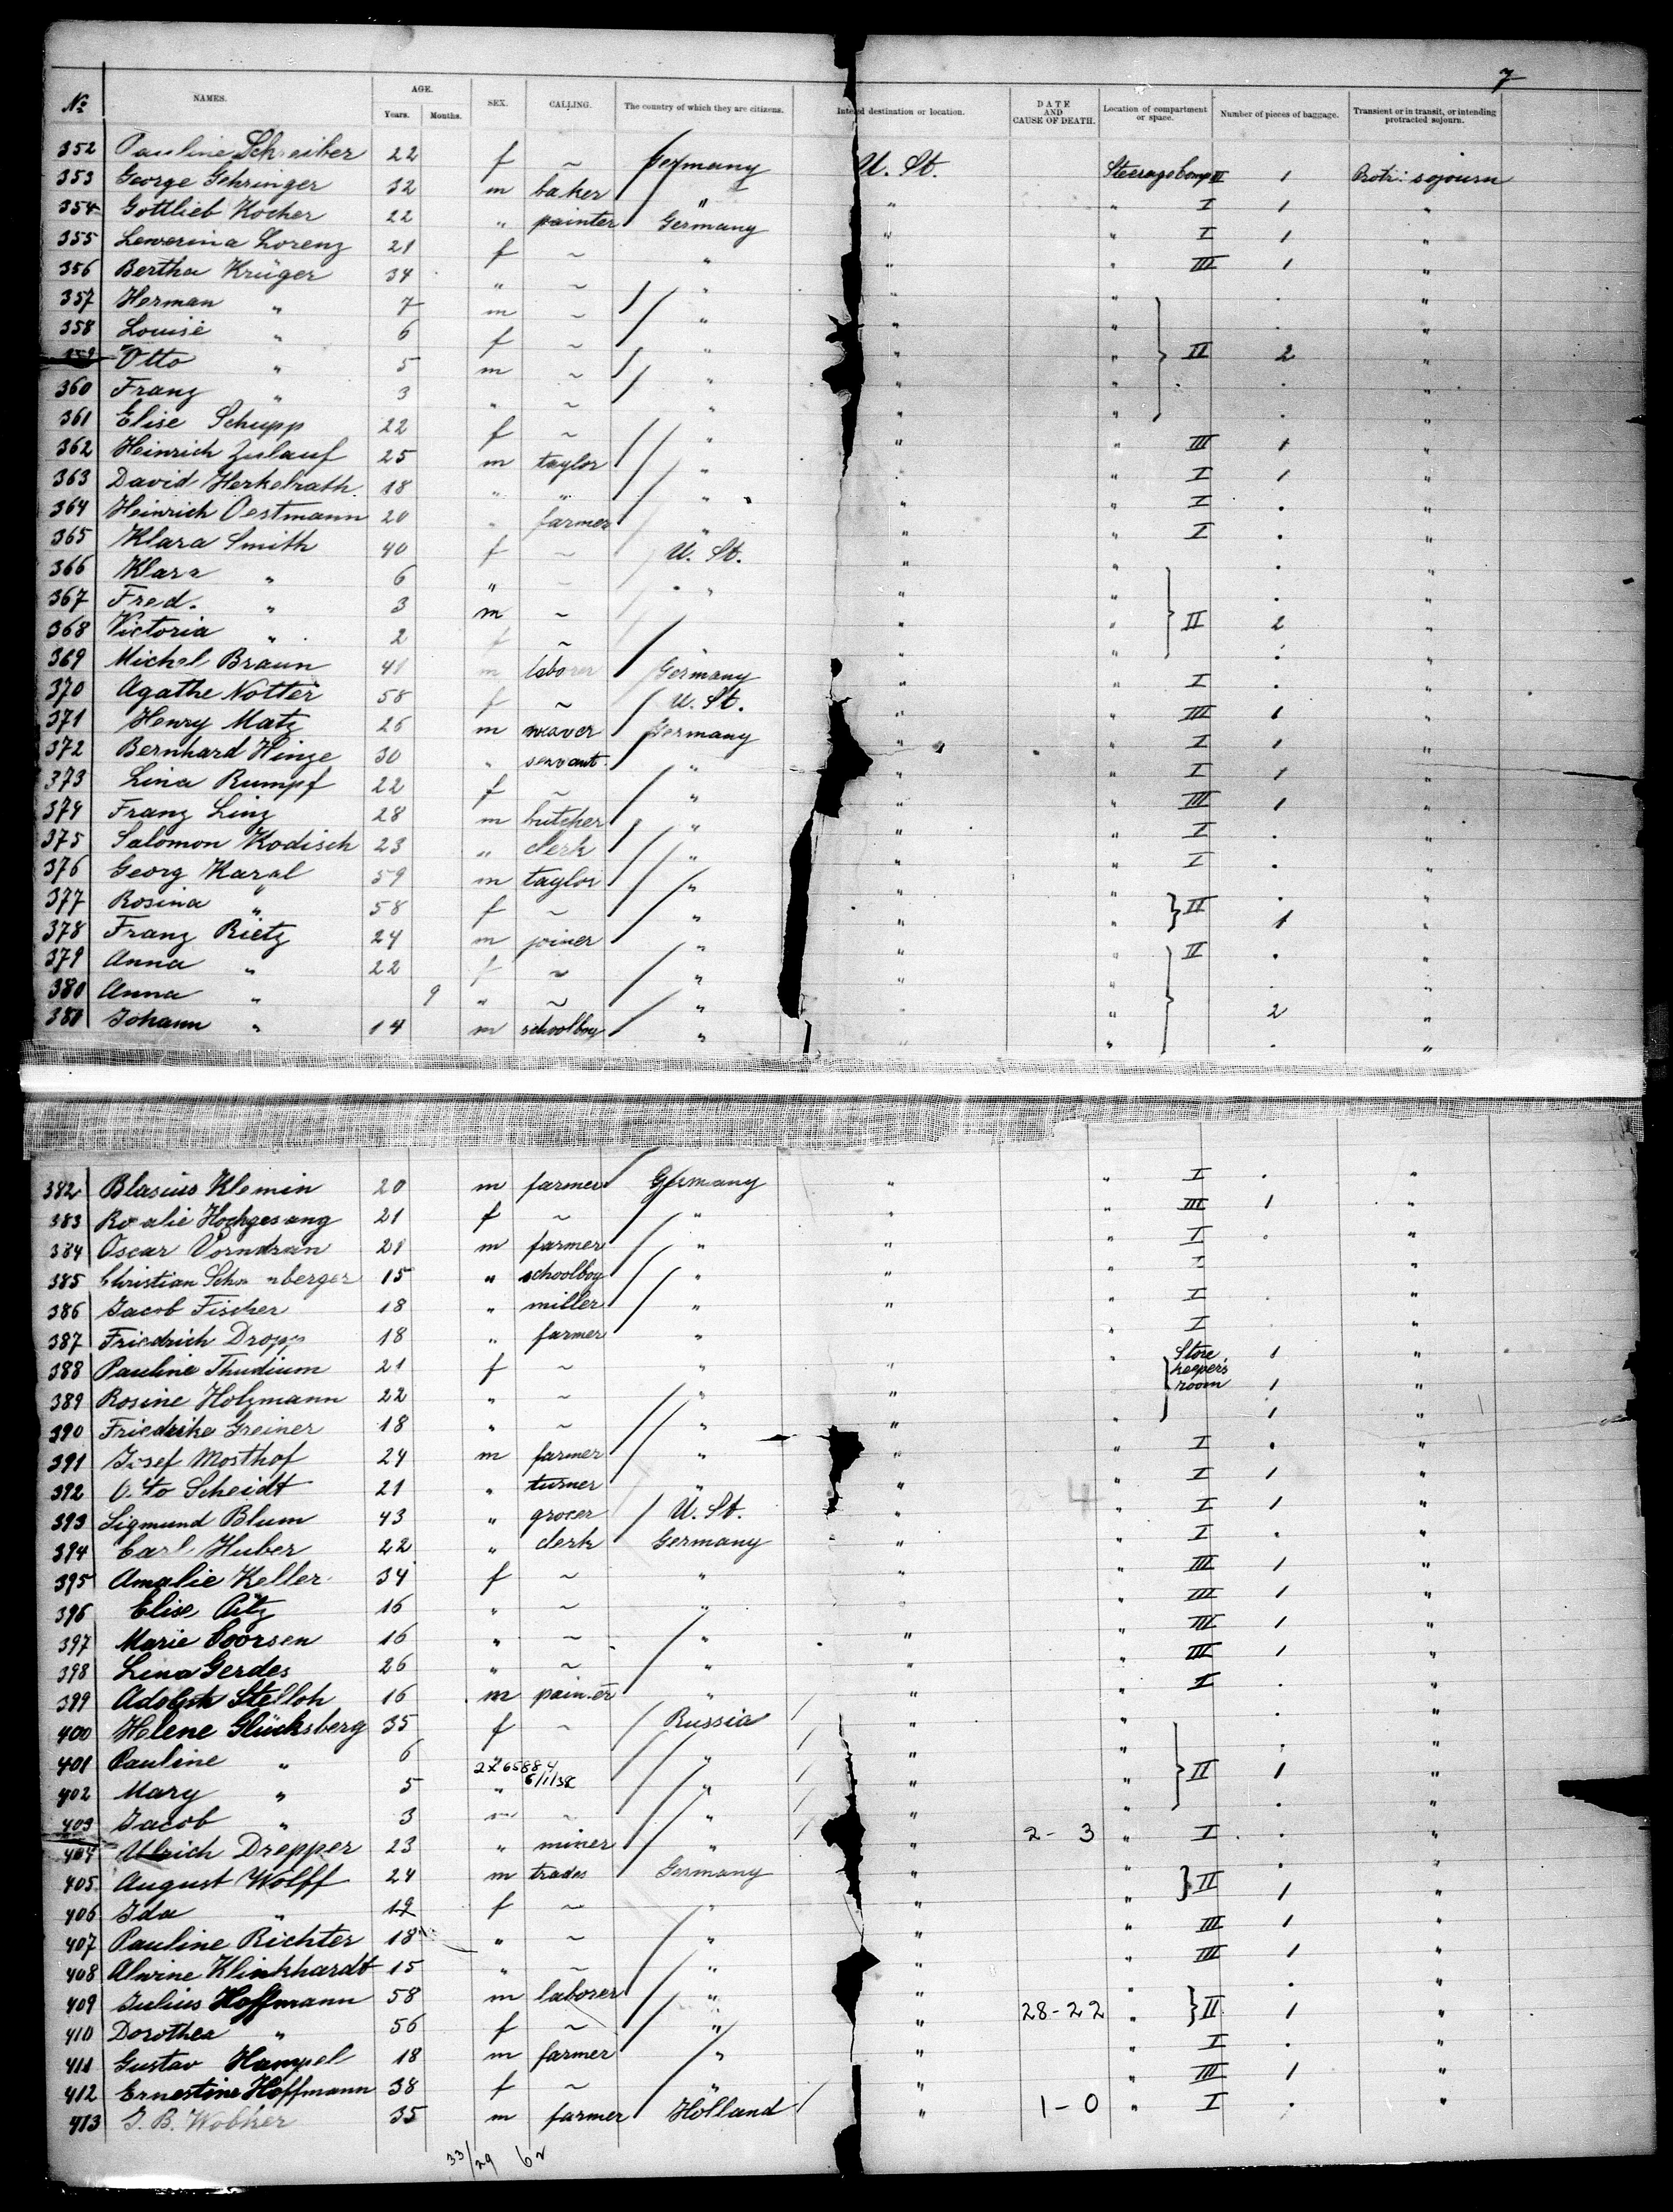 7
No NAMES. AGE. Years. Months. SEX. CALLING. The country of which they are citizens. Intend destination or location. DATE AND CAUSE OF DEATH. Location of compartment or space. Number of pieces of baggage. Transient or in transit, or intending protracted sojourn.
352 Pauline Schreiber 22 f ~ Germany U. St. Steerage Comp III 1 Protr: sojourn
353 George Gehringer 32 m baker " " " I 1 "
354 Gottlieb Kocher 22 " painter Germany " " I 1 "
355 Lewerina Lorenz 21 f ~ " " " III 1 "
356 Bertha Krüger 34 " ~ " " " . "
357 Herman " 7 m ~ " " " . "
358 Louise " 6 f ~ " " " II 2 "
359 Otto " 5 m ~ " " " . "
360 Franz " 3 " ~ " " " . "
361 Elise Schupp 22 f ~ " " " III 1 "
362 Heinrich Zulauf 25 m taylor " " " I 1 "
363 David Herkelrath 18 " " " " " I . "
364 Heinrich Oestmann 20 " farmer " " " I . "
365 Klara Smith 40 f ~ U. St. " " . "
366 Klara " 6 " ~ " " " . "
367 Fred. " 3 m ~ " " II 2 "
368 Victoria " 2 f ~ " " " . "
369 Michel Braun 41 m laborer Germany " " I . "
370 Agathe Notter 58 f ~ U. St. " " III 1 "
371 Henry Matz 26 m weaver Germany " " I 1 "
372 Bernhard Hinze 30 " servant " " " I 1 "
373 Lina Rumpf 22 f ~ " " " III 1 "
374 Franz Linz 28 m butcher " " " I . "
375 Salomon Kodisch 23 " clerk " " " I . "
376 Georg Karal 59 m taylor " " " II . "
377 Rosina " 58 f ~ " " " 1 "
378 Franz Rietz 24 m joiner " " " II . "
379 Anna " 22 f ~ " " " . "
380 Anna " 9 " ~ " " " 2 "
381 Johann " 14 m schoolboy " " " . "
382 Blasius Klemin 20 m farmer Germany " " I . "
383 Ro alie Hochgesang 21 f ~ " " " III 1 "
384 Oscar Vorndran 21 m farmer " " " I . "
385 Christian Scho nberger 15 " schoolboy " " " I "
386 Jacob Fischer 18 " miller " " " I . "
387 Friedrich Dropp 18 " farmer " " I "
388 Pauline Thudium 21 f ~ " " " Store keeper's room 1 "
389 Rosine Holzmann 22 " ~ " " 1 "
390 Friedrike Greiner 18 " ~ " " " 1 "
391 Josef Mosthof 24 m farmer " " " I . "
392 Otto Scheidt 21 " turner " " " I 1 "
393 Sigmund Blum 43 " grocer U. St. " " I 1 "
394 Carl Huber 22 " clerk Germany " " I . "
395 Amalie Keller 34 f ~ " " " III 1 "
396 Elise 16 " ~ " " " III 1 "
397 Marie Coorsen 16 " ~ " " " III 1 "
398 Lina Gerdes 26 " ~ " " " III 1 "
399 Adolph Stelloh 16 m pain er " " " I . "
400 Helene Glücksberg 35 f ~ Russia " " . "
401 Pauline " 6 2Z 65884 " " " . "
402 Mary " 5 " 6/1/38 " " " II 1 "
403 Jacob " 3 m ~ " " " . "
404 Ulrich Drepper 23 " miner " " 2-3 " I . "
405 August Wolff 24 m trades Germany " " II . "
406 Ida " 19 f ~ " " " 1 "
407 Pauline Richter 18 " ~ " " " III 1 "
408 Alwine Klinkhardt 15 " ~ " " " III 1 "
409 Julius Hoffmann 58 m laborer " " " II . "
410 Dorothea " 56 f ~ " " 28-22 " 1 "
411 Gustav Hampel 18 m farmer " " " I . "
412 Ernestine Hoffmann 38 f ~ " " " III 1 "
413 J. B. Wobker 35 m farmer Holland " 1-0 " I . "
33/29